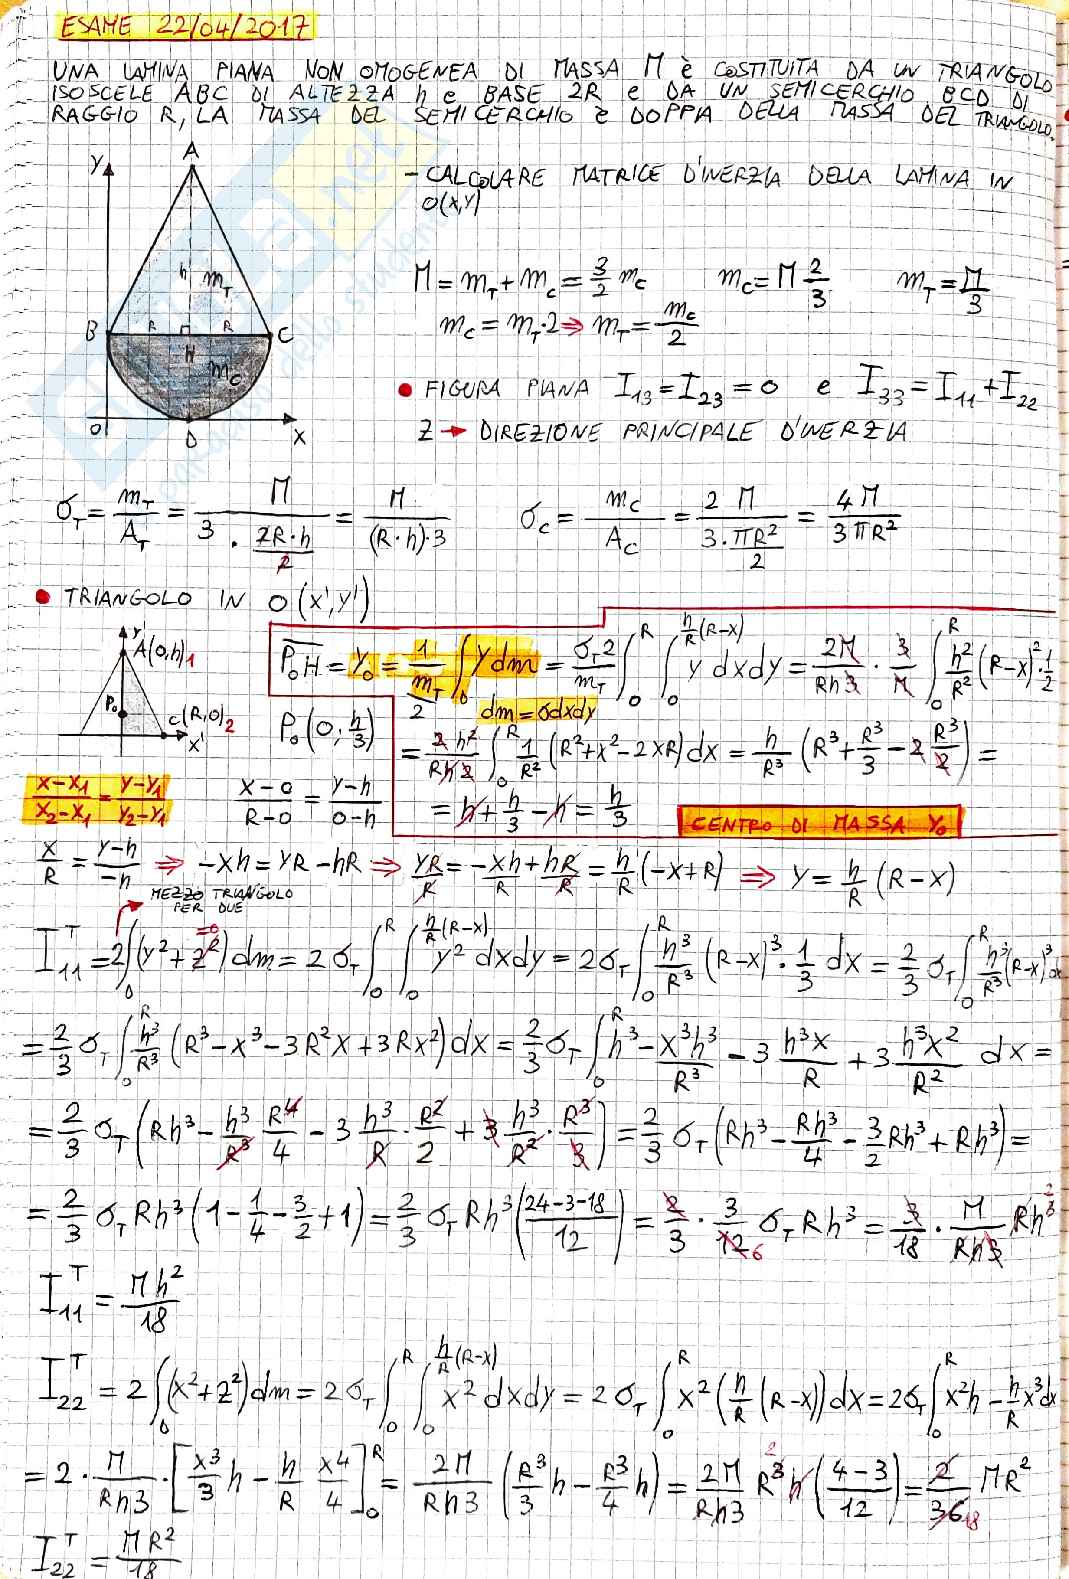 ESAME 22/04/2017
UNA LAMINA PIANA NON OMOGENEA DI MASSA M è COSTITUITA DA UN TRIANGOLO
ISOSCELE ABC DI ALTEZZA h e BASE 2R e DA UN SEMICERCHIO BCD DI
RAGGIO R, LA MASSA DEL SEMICERCHIO è DOPPIA DELLA MASSA DEL TRIANGOLO.
Y A h m_T B R R C H m_C O D X
- CALCOLARE MATRICE D'INERZIA DELLA LAMINA IN
O(X,Y)
M = m_T + m_C = 3/2 m_C m_C = M 2/3 m_T = M/3
m_C = m_T·2 ⇒ m_T = m_C/2
• FIGURA PIANA I_13 = I_23 = 0 e I_33 = I_11 + I_22
Z → DIREZIONE PRINCIPALE D'INERZIA
σ_T = m_T/A_T = M/(3·2R·h/2) = M/((R·h)·3) σ_C = m_C/A_C = 2M/(3·πR²/2) = 4M/(3πR²)
• TRIANGOLO IN O(X',Y')
Y' A(0,h)1 P₀ C(R,0)2 X'
P₀H = Y₀ = 1/(m_T/2) ∫₀ Y dm = σ_T 2/m_T ∫₀^R ∫₀^(h/R(R-X)) Y dxdy = 2M/(Rh3) · 3/M ∫₀^R h²/R² (R-X)² · 1/2
dm = σdxdy
P₀(0, h/3)
= 2h²/(Rh2) ∫₀^R 1/R² (R² + X² - 2XR) dX = h/R³ (R³ + R³/3 - 2 R³/2) =
= h + h/3 - h = h/3
CENTRO DI MASSA Y₀
(X-X₁)/(X₂-X₁) = (Y-Y₁)/(Y₂-Y₁) (X-0)/(R-0) = (Y-h)/(0-h)
X/R = (Y-h)/-h ⇒ -Xh = YR - hR ⇒ YR/R = -Xh/R + hR/R = h/R (-X+R) ⇒ Y = h/R (R-X)
MEZZO TRIANGOLO
PER DUE
I_11^T = 2∫₀(Y² + Z²) dm = 2σ_T ∫₀^R ∫₀^(h/R(R-X)) Y² dxdy = 2σ_T ∫₀^R h³/R³ (R-X)³ · 1/3 dX = 2/3 σ_T ∫₀^R h³/R³ (R-X)³ dx
=0
= 2/3 σ_T ∫₀^R h³/R³ (R³ - X³ - 3R²X + 3RX²) dX = 2/3 σ_T ∫₀^R h³ - X³h³/R³ - 3 h³X/R + 3 h³X²/R² dX =
= 2/3 σ_T (Rh³ - h³/R³ R⁴/4 - 3 h³/R · R²/2 + 3 h³/R² · R³/3) = 2/3 σ_T (Rh³ - Rh³/4 - 3/2 Rh³ + Rh³) =
= 2/3 σ_T Rh³ (1 - 1/4 - 3/2 + 1) = 2/3 σ_T Rh³ ((24-3-18)/12) = 2/3 · 3/12 6 σ_T Rh³ = 3/18 · M/(Rh3) Rh³ 2
I_11^T = Mh²/18
I_22^T = 2∫₀(X² + Z²) dm = 2σ_T ∫₀^R ∫₀^(h/R(R-X)) X² dxdy = 2σ_T ∫₀^R X² (h/R (R-X)) dX = 2σ_T ∫₀^R X²h - h/R X³ dx
= 2 · M/(Rh3) · [X³/3 h - h/R X⁴/4]₀^R = 2M/(Rh3) (R³/3 h - R³/4 h) = 2M/(Rh3) R³ 2 h ((4-3)/12) = 2/36 18 MR²
I_22^T = MR²/18